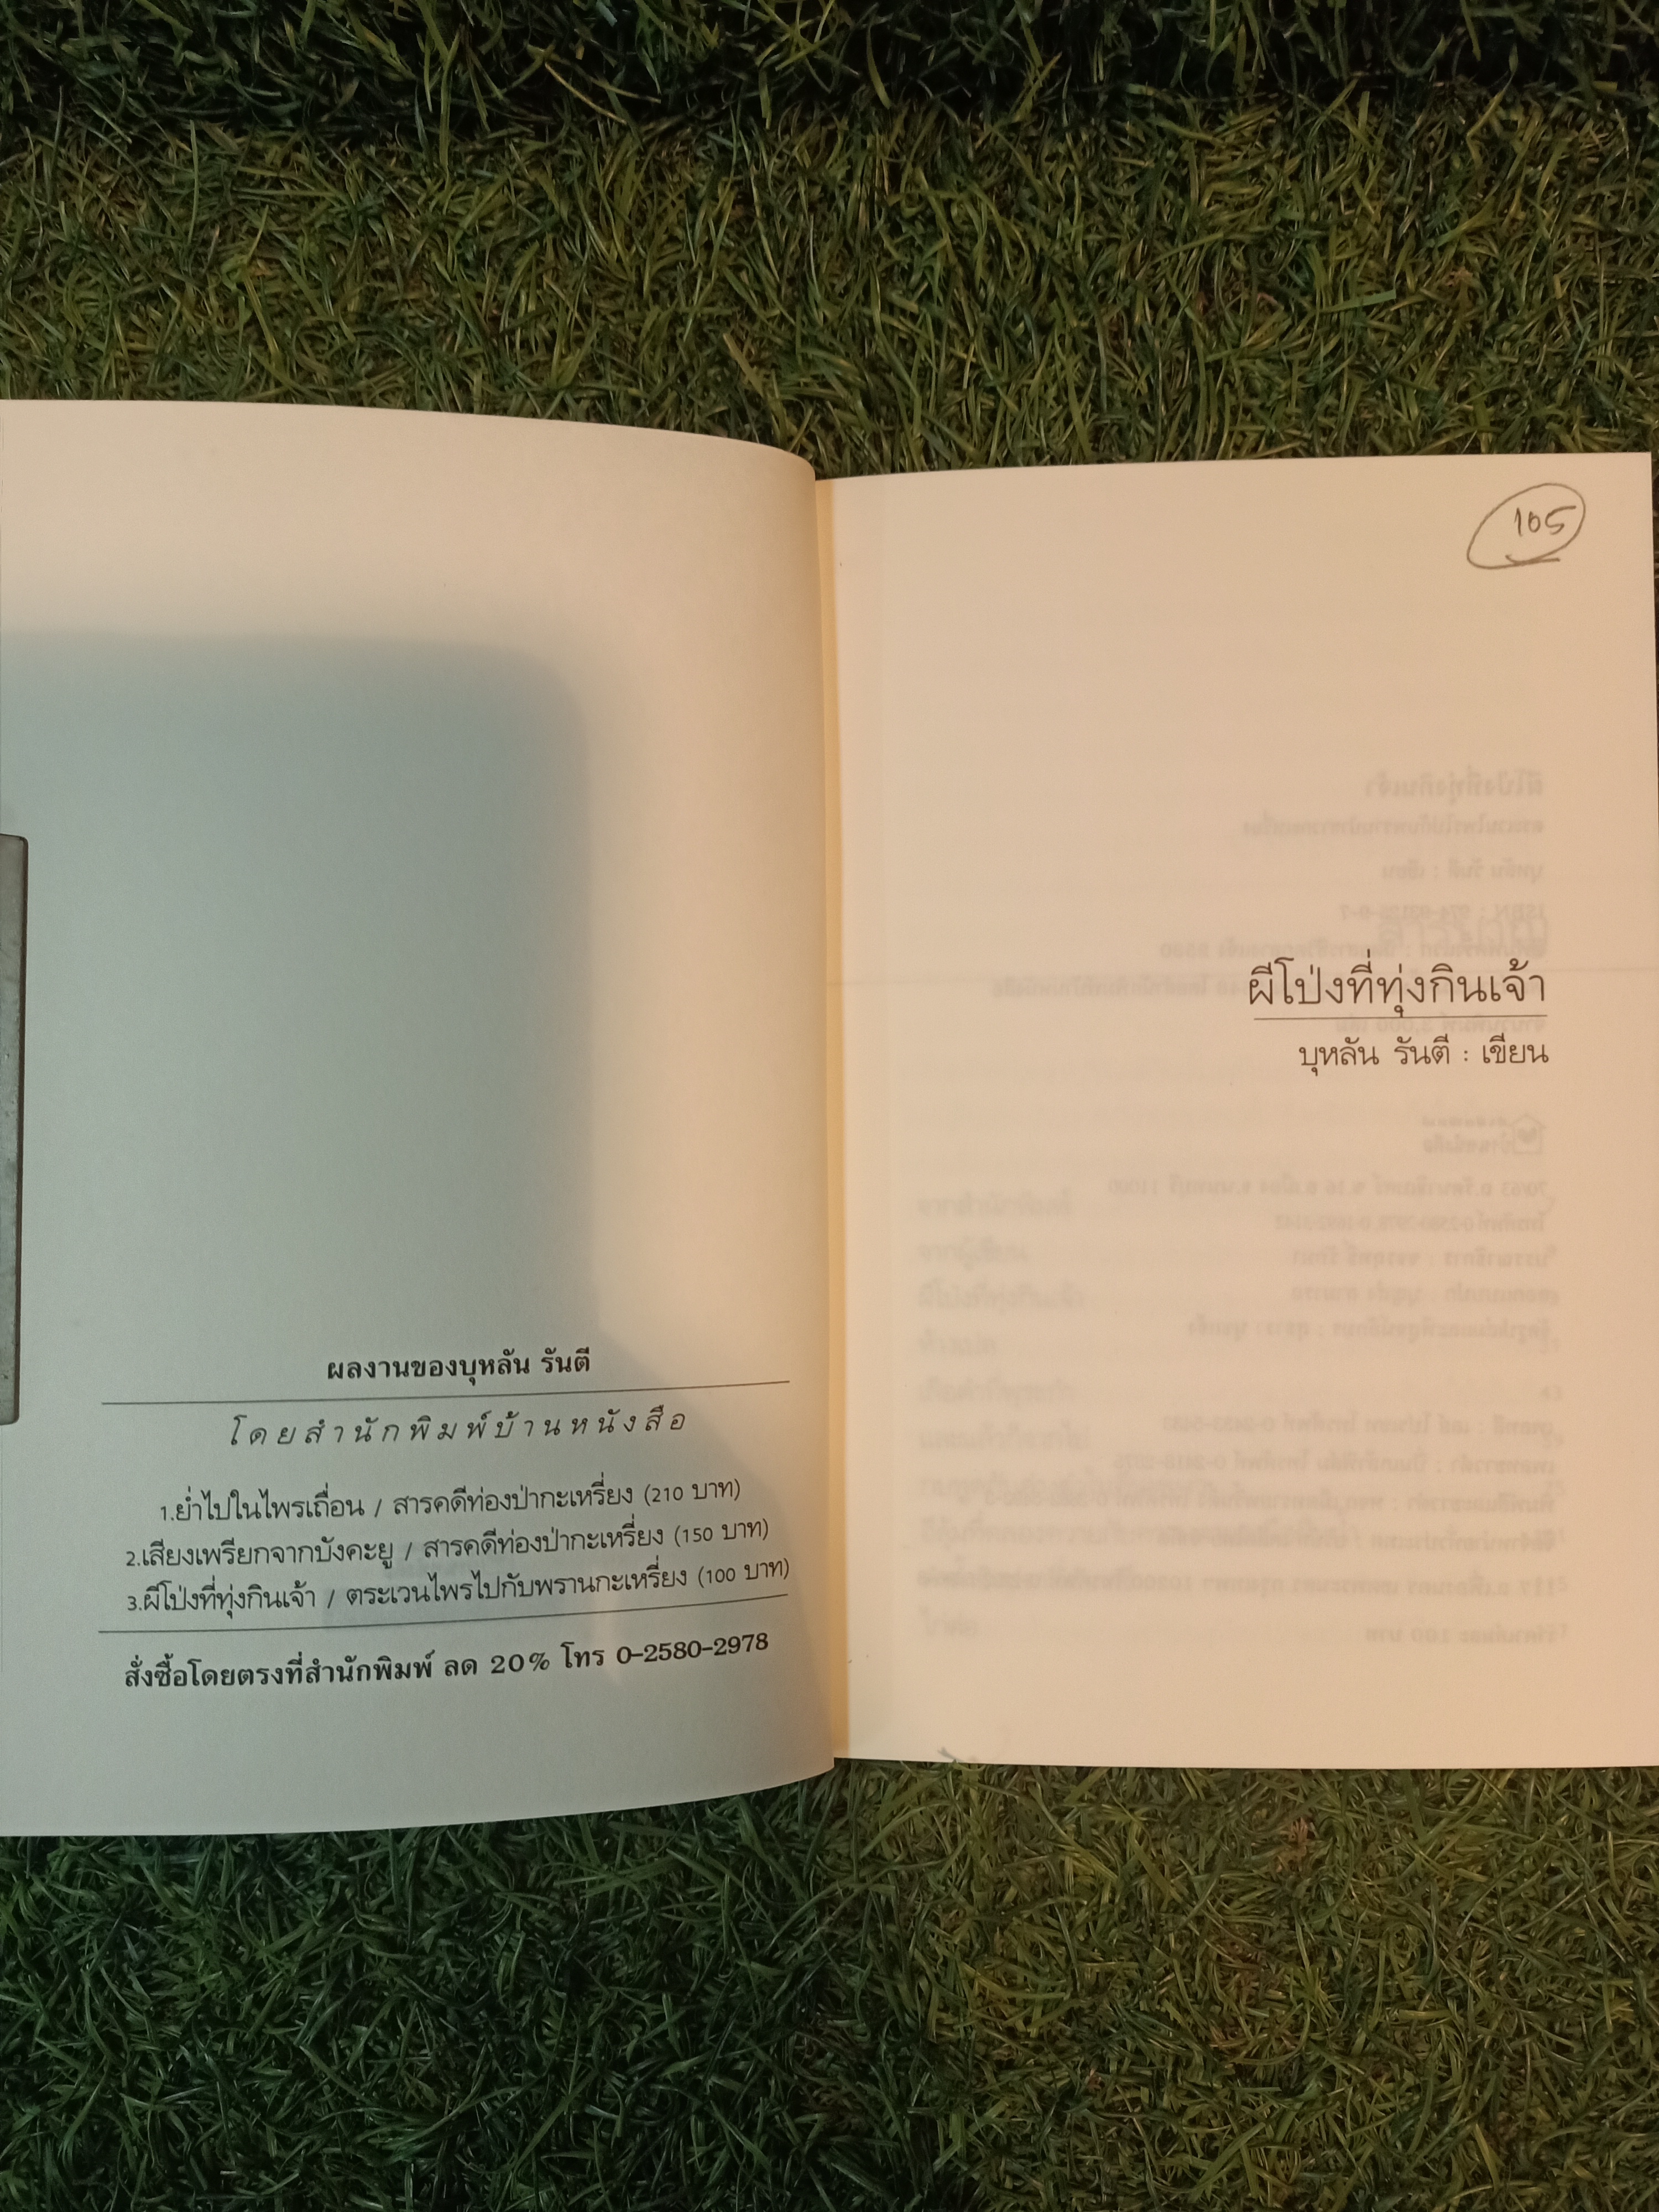 ผลงานของบุหลัน รันตี
โดยสำนักพิมพ์บ้านหนังสือ
1.ย่ำไปในไพรเถื่อน / สารคดีท่องป่ากะเหรี่ยง (210 บาท)
2.เสียงเพรียกจากบังคะยู / สารคดีท่องป่ากะเหรี่ยง (150 บาท)
3.ผีโป่งที่ทุ่งกินเจ้า / ตระเวนไพรไปกับพรานกะเหรี่ยง (100 บาท)
สั่งซื้อโดยตรงที่สำนักพิมพ์ ลด 20% โทร 0-2580-2978
105
ผีโป่งที่ทุ่งกินเจ้า
บุหลัน รันตี : เขียน